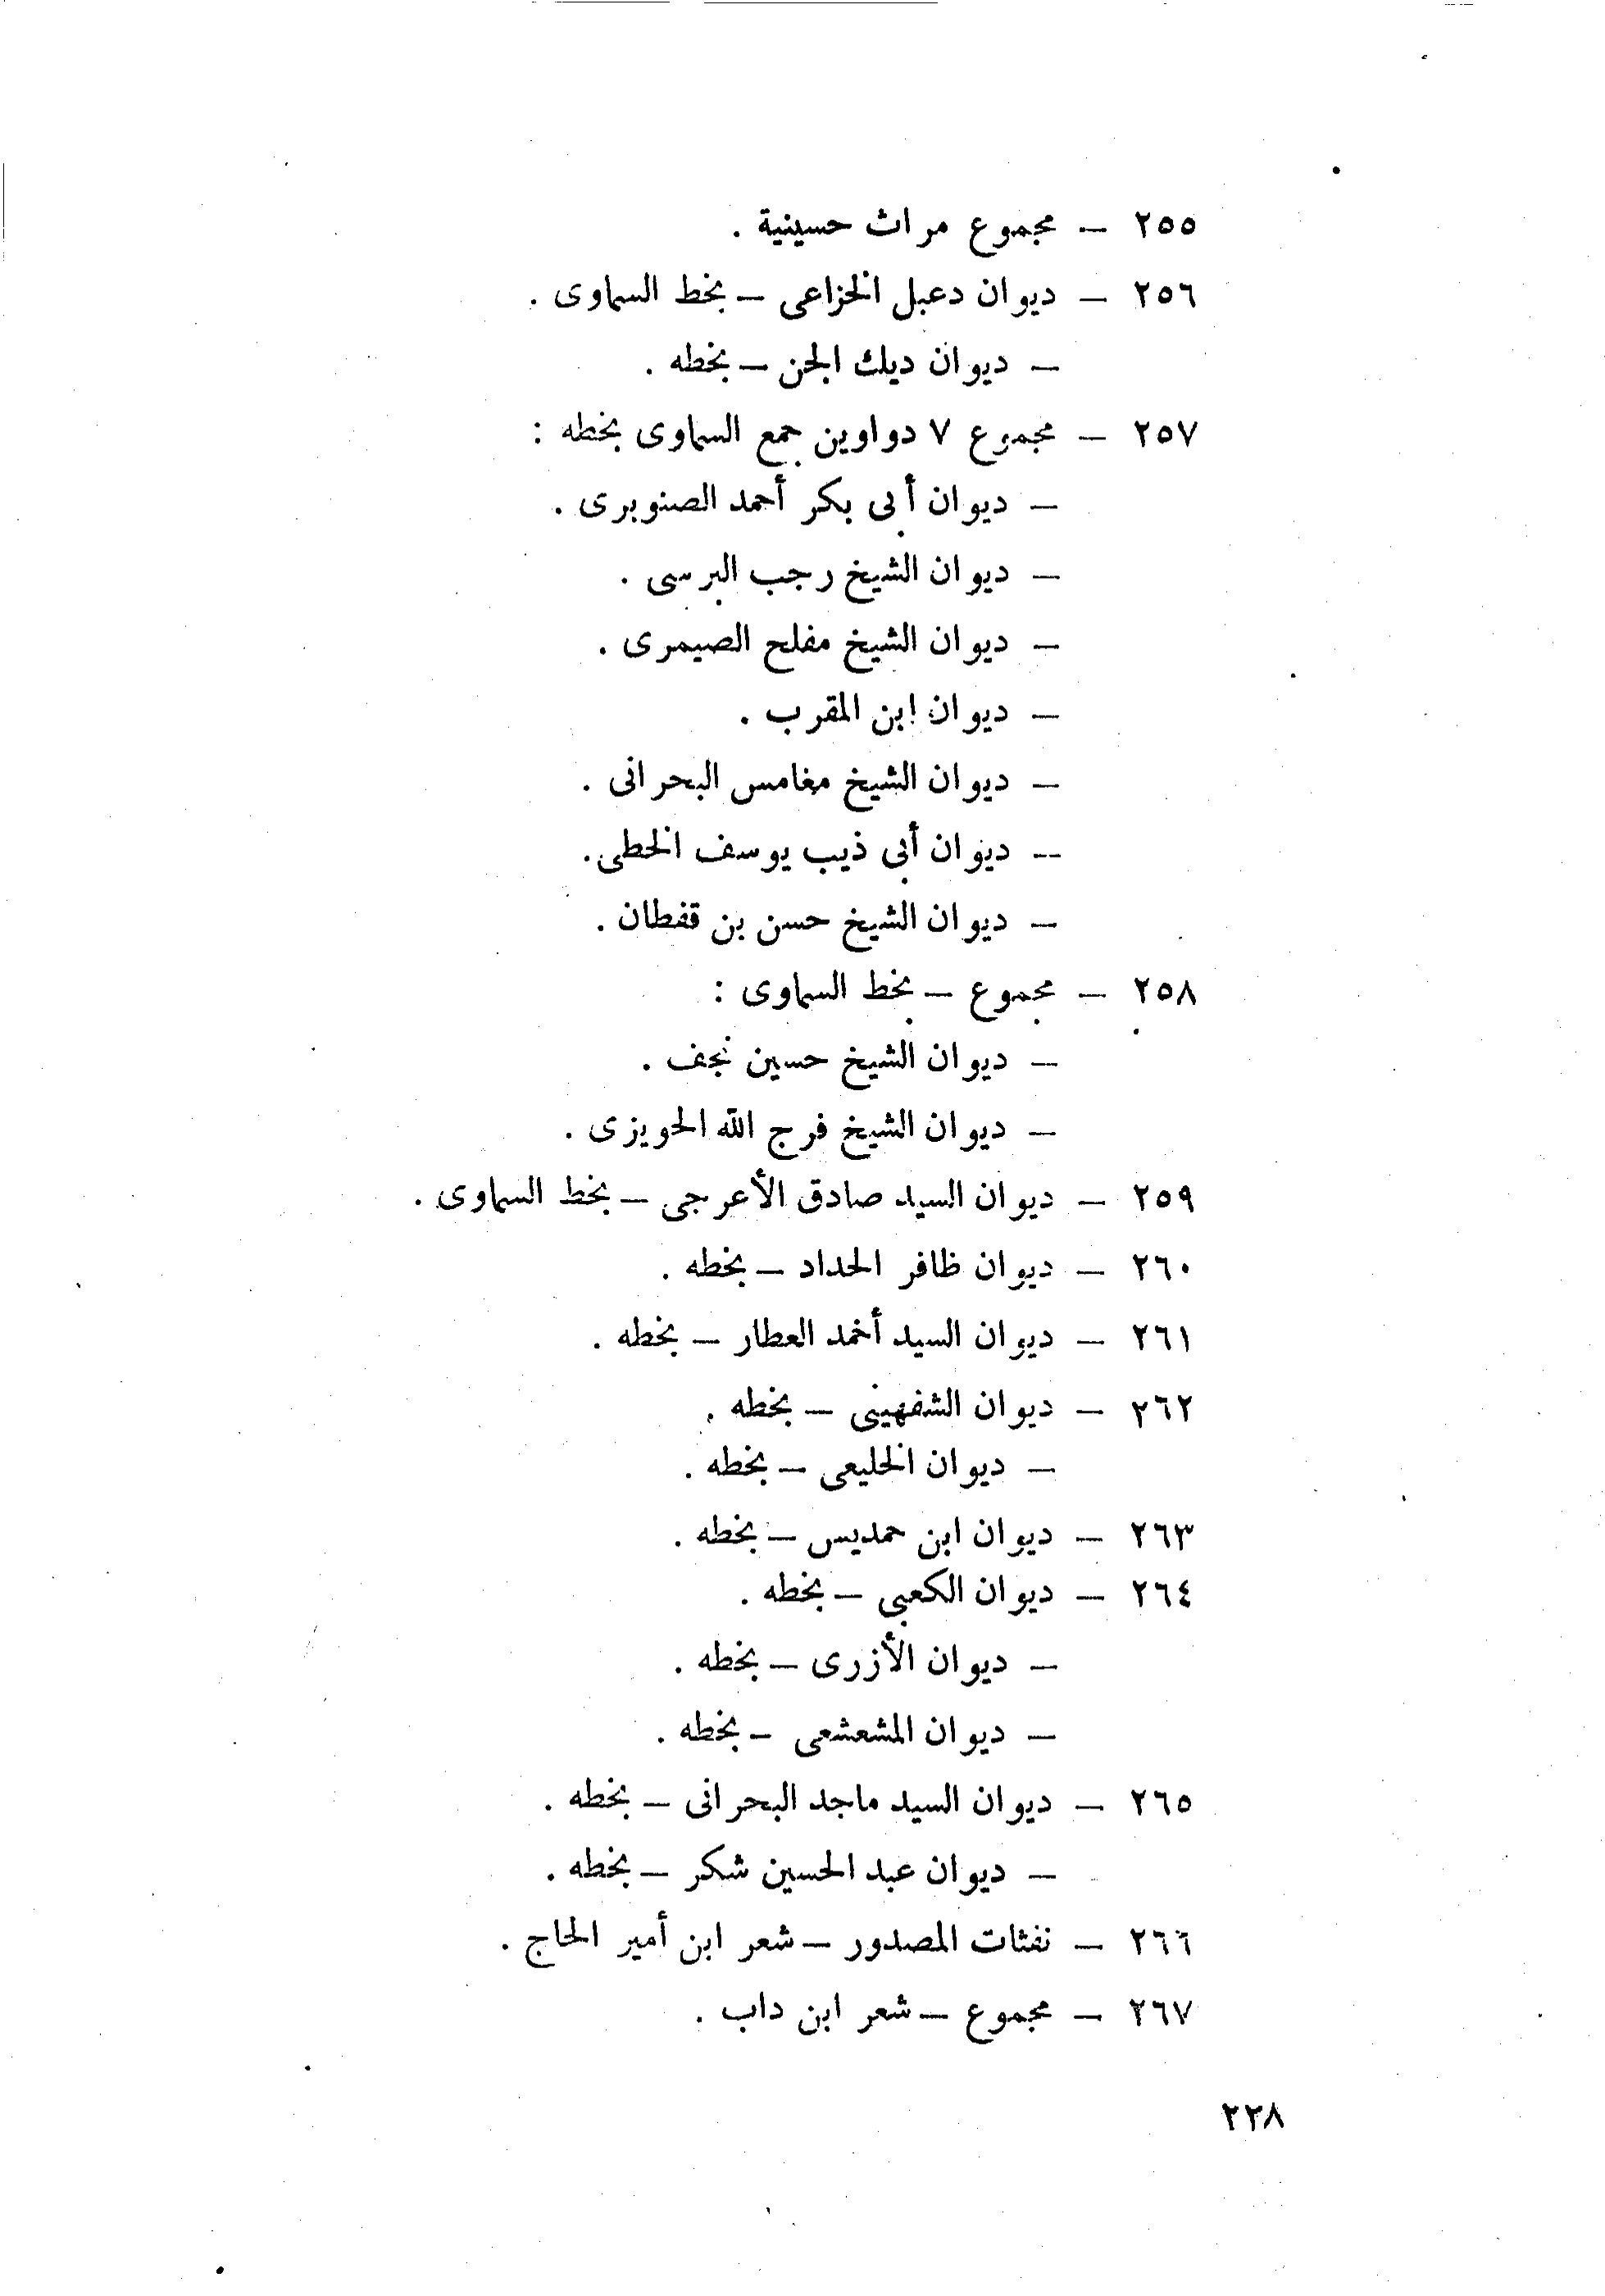 ٢٥٥ – مجموع مراث حسينية .
٢٥٦ – ديوان دعبل الخزاعى – بخط السماوى .
– ديوان ديك الجن – بخطه .
٢٥٧ – مجموع ٧ دواوين جمع السماوى بخطه :
– ديوان أبى بكر أحمد الصنوبرى .
– ديوان الشيخ رجب البرسى .
– ديوان الشيخ مفلح الصيمرى .
– ديوان ابن المقرب .
– ديوان الشيخ مغامس البحرانى .
– ديوان أبى ذيب يوسف الخطى .
– ديوان الشيخ حسن بن قفطان .
٢٥٨ – مجموع – بخط السماوى :
– ديوان الشيخ حسين نجف .
– ديوان الشيخ فرج الله الحويزى .
٢٥٩ – ديوان السيد صادق الأعرجى – بخط السماوى .
٢٦٠ – ديوان ظافر الحداد – بخطه .
٢٦١ – ديوان السيد أحمد العطار – بخطه .
٢٦٢ – ديوان الشفهينى – بخطه .
– ديوان الخليعى – بخطه .
٢٦٣ – ديوان ابن حمديس – بخطه .
٢٦٤ – ديوان الكعبى – بخطه .
– ديوان الأزرى – بخطه .
– ديوان المشعشعى – بخطه .
٢٦٥ – ديوان السيد ماجد البحرانى – بخطه .
– ديوان عبد الحسين شكر – بخطه .
٢٦٦ – نفثات المصدور – شعر ابن أمير الحاج .
٢٦٧ – مجموع – شعر ابن داب .
٢٢٨